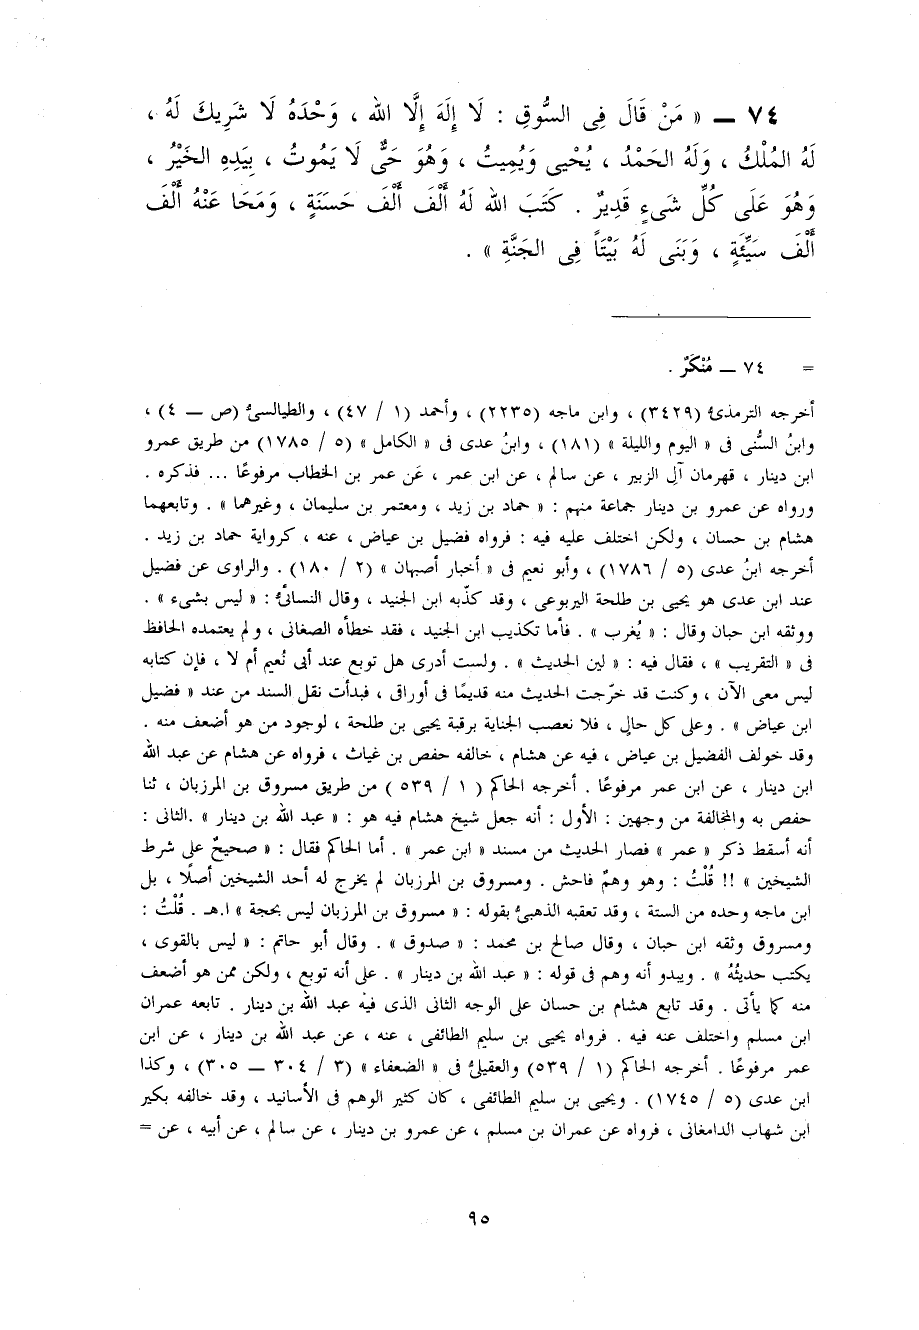 ٧٤ ــ « مَنْ قَالَ فِى السُّوقِ : لَا إِلَهَ إِلَّا الله ، وَحْدَهُ لَا شَرِيكَ لَهُ ،
لَهُ المُلْكُ ، وَلَهُ الحَمْدُ ، يُحْيى وَيُمِيتُ ، وَهُوَ حَىٌّ لَا يَمُوتُ ، بِيَدِهِ الخَيْرُ ،
وَهُوَ عَلَى كُلِّ شَىءٍ قَدِيرٌ . كَتَبَ الله لَهُ أَلْفَ أَلْفَ حَسَنَةٍ ، وَمَحَا عَنْهُ أَلْفَ
أَلْفَ سَيِّئَةٍ ، وَبَنَى لَهُ بَيْتَاً فِى الجَنَّةِ » .
= ٧٤ ــ مُنْكَرٌ .
أخرجه الترمذىُّ (٣٤٢٩) ، وابن ماجه (٢٢٣٥) ، وأحمد (١ / ٤٧) ، والطيالسىُّ (ص ــ ٤) ،
وابنُ السُّنى فى « اليوم والليلة » (١٨١) ، وابنُ عدى فى « الكامل » (٥ / ١٧٨٥) من طريق عمرو
ابن دينار ، قهرمان آل الزبير ، عن سالم ، عن ابن عمر ، عَن عمر بن الخطاب مرفوعًا ... فذكره .
ورواه عن عمرو بن دينار جماعة منهم : « حماد بن زيد ، ومعتمر بن سليمان ، وغيرهما » . وتابعهما
هشام بن حسان ، ولكن اختلف عليه فيه : فرواه فضيل بن عياض ، عنه ، كرواية حماد بن زيد .
أخرجه ابنُ عدى (٥ / ١٧٨٦) ، وأبو نعيم فى « أخبار أصبهان » (٢ / ١٨٠) . والراوى عن فضيل
عند ابن عدى هو يحيى بن طلحة اليربوعى ، وقد كذّبه ابن الجنيد ، وقال النسائىُّ : « ليس بشىء » .
ووثقه ابن حبان وقال : « يُغرب » . فأما تكذيب ابن الجنيد ، فقد خطأه الصغانى ، ولم يعتمده الحافظ
فى « التقريب » ، فقال فيه : « لين الحديث » . ولست أدرى هل توبع عند أبى نُعيم أم لا ، فإن كتابه
ليس معى الآن ، وكنت قد خرّجت الحديث منه قديمًا فى أوراقى ، فبدأت نقل السند من عند « فضيل
ابن عياض » . وعلى كل حالٍ ، فلا نعصب الجناية برقبة يحيى بن طلحة ، لوجود من هو أضعف منه .
وقد خولف الفضيل بن عياض ، فيه عن هشام ، خالفه حفص بن غياث ، فرواه عن هشام عن عبد الله
ابن دينار ، عن ابن عمر مرفوعًا . أخرجه الحاكم ( ١ / ٥٣٩ ) من طريق مسروق بن المرزبان ، ثنا
حفص به والمخالفة من وجهين : الأول : أنه جعل شيخ هشام فيه هو : « عبد الله بن دينار » .الثانى :
أنه أسقط ذكر « عمر » فصار الحديث من مسند « ابن عمر » . أما الحاكم فقال : « صحيحٌ على شرط
الشيخين » !! قُلْتُ : وهو وهمٌ فاحش . ومسروق بن المرزبان لم يخرج له أحد الشيخين أصلًا ، بل
ابن ماجه وحده من الستة ، وقد تعقبه الذهبىُّ بقوله : « مسروق بن المرزبان ليس بحجة » ا.هـ . قُلْتُ :
ومسروق وثقه ابن حبان ، وقال صالح بن محمد : « صدوق » . وقال أبو حاتم : « ليس بالقوى ،
يكتب حديثُهُ » . ويبدو أنه وهم فى قوله : « عبد الله بن دينار » . على أنه توبع ، ولكن ممن هو أضعف
منه كما يأتى . وقد تابع هشام بن حسان على الوجه الثانى الذى فيه عبد الله بن دينار . تابعه عمران
ابن مسلم واختلف عنه فيه . فرواه يحيى بن سليم الطائفى ، عنه ، عن عبد الله بن دينار ، عن ابن
عمر مرفوعًا . أخرجه الحاكم (١ / ٥٣٩) والعقيلىُّ فى « الضعفاء » (٣ / ٣٠٤ ــ ٣٠٥) ، وكذا
ابن عدى (٥ / ١٧٤٥) . ويحيى بن سليم الطائفى ، كان كثير الوهم فى الأسانيد ، وقد خالفه بكير
ابن شهاب الدامغانى ، فرواه عن عمران بن مسلم ، عن عمرو بن دينار ، عن سالم ، عن أبيه ، عن =
٩٥